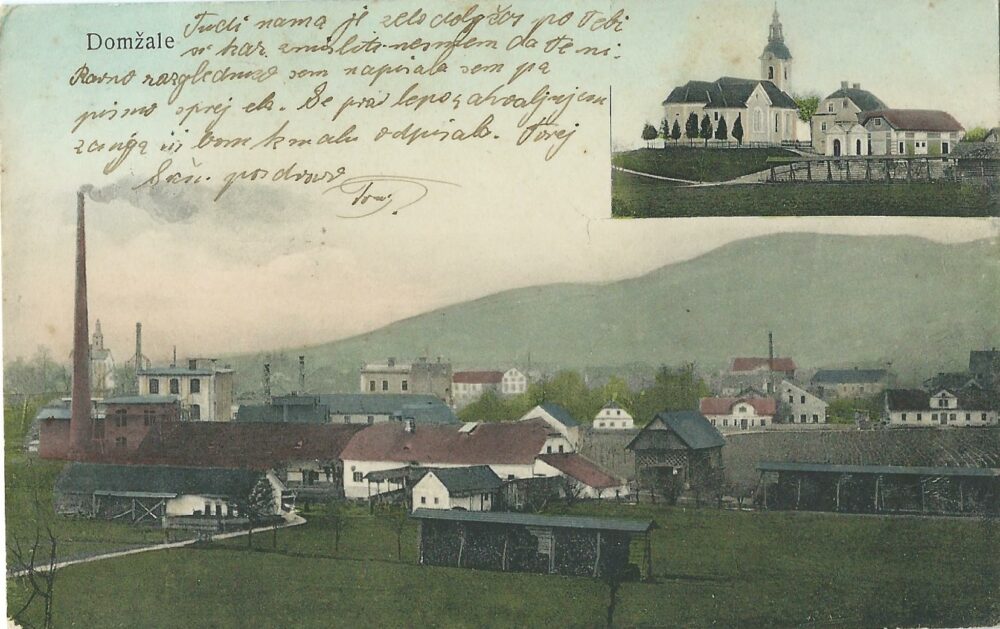 Domžale
Tudi nama je zelo dolgčas po Tebi
kar misliti nesmem da Te ni.
Ravno razglednico sem napisala sem pa
pismo sprejela. Se prav lepo zahvaljujem
zanj in bom kmalu odpisala. Torej
Srč. pozdrave